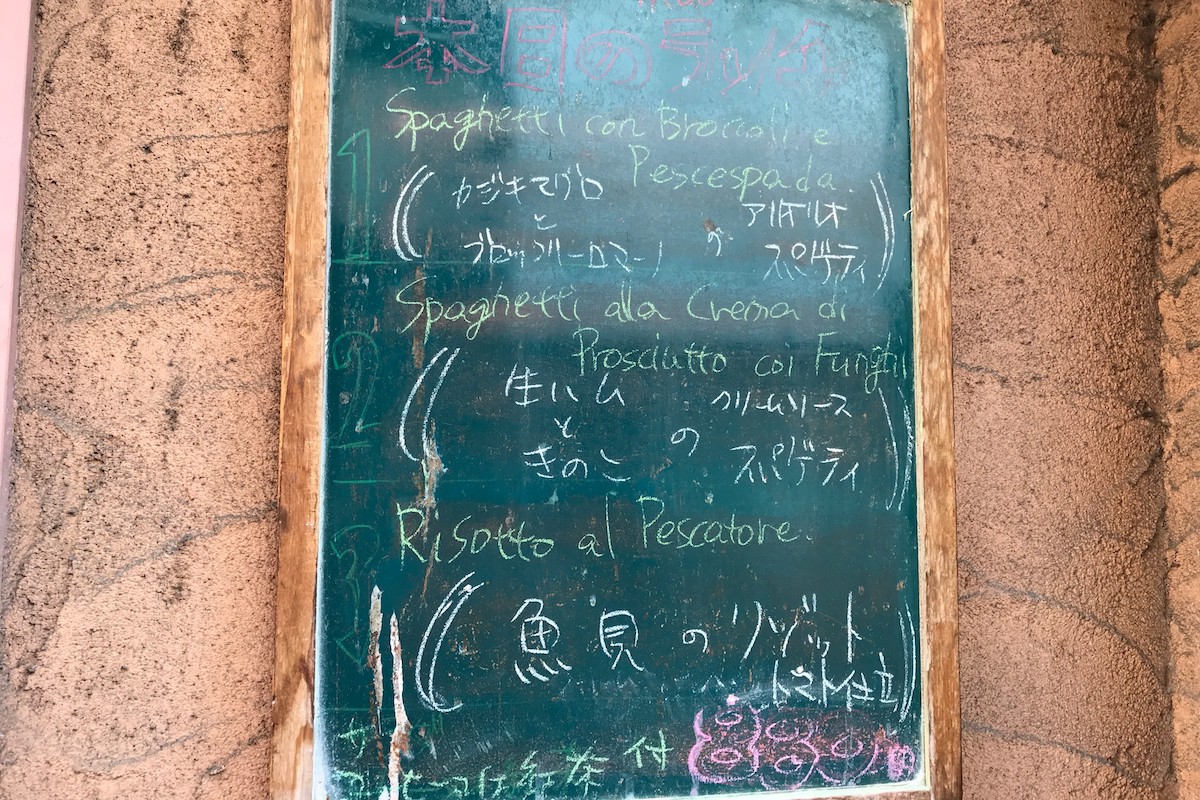 本日のランチ
1
Spaghetti con Broccoli e
Pescespada.
(カジキマグロ
と
ブロッコリーロマーノ の
スパゲティ)
2
Spaghetti alla Crema di
Prosciutto coi Funghi
(生ハム
と
きのこ の
クリームソース
スパゲティ)
3
Risotto al Pescatore.
(魚見のリゾット
トマト仕立)
紅茶付